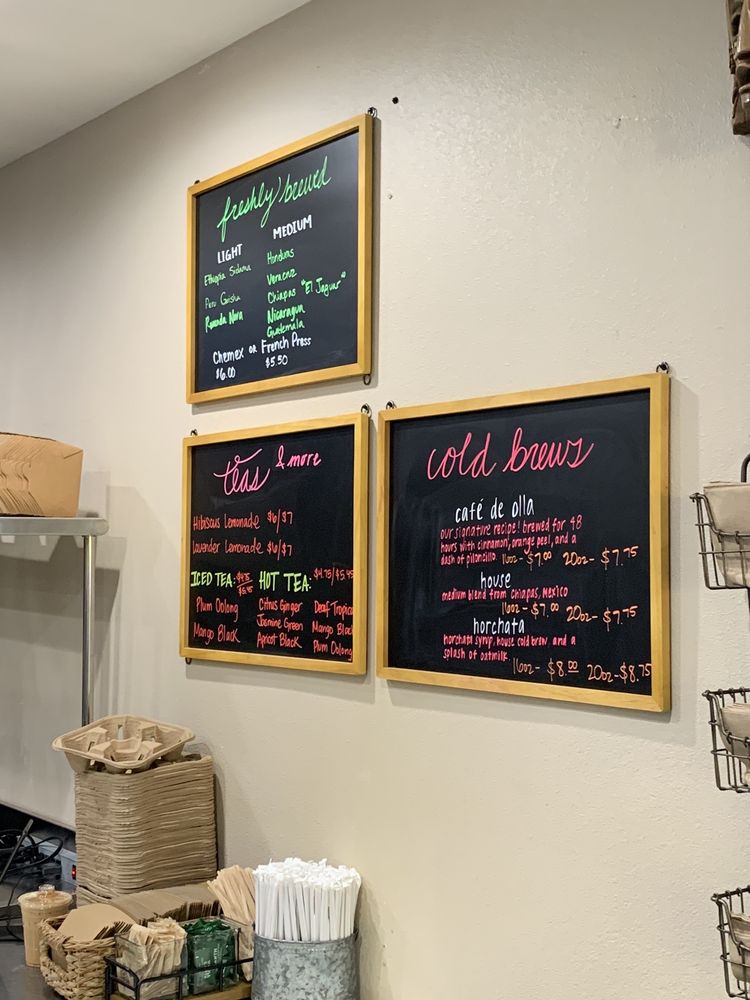 freshly brewed
LIGHT
Ethiopia Sidama
Peru Geisha
Rwanda Nova
MEDIUM
Honduras
Veracruz
Chiapas "El Jaguar"
Nicaragua
Guatemala
Chemex OR French Press
$6.00 $5.50
teas & more
Hibiscus Lemonade $6/$7
Lavender Lemonade $6/$7
ICED TEA: $4.75 $5.45
Plum Oolong
Mango Black
HOT TEA: $4.75/$5.45
Citrus Ginger
Jasmine Green
Apricot Black
Decaf Tropical
Mango Black
Plum Oolong
cold brews
café de olla
our signature recipe! brewed for 48
hours with cinnamon, orange peel, and a
dash of piloncillo. 16oz- $7.00 20oz- $7.75
house
medium blend from chiapas, mexico
16oz- $7.00 20oz- $7.75
horchata
horchata syrup, house cold brew, and a
splash of oatmilk.
16oz- $8.00 20oz- $8.75